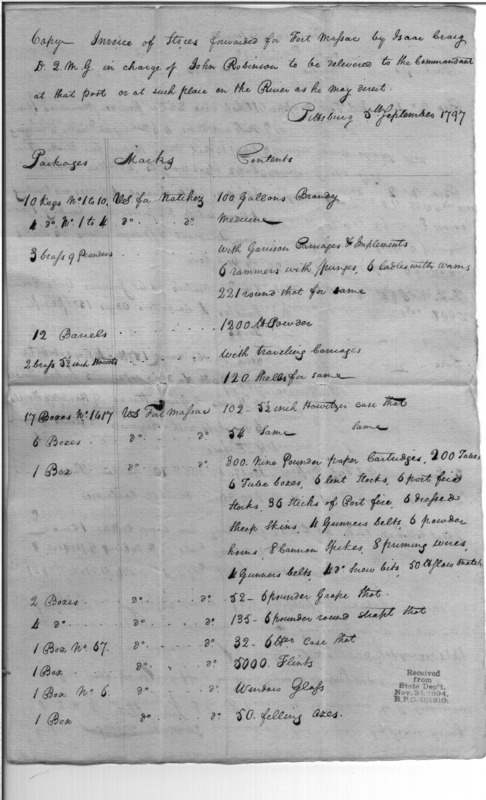 Copy Invoice of Stores forwarded for Fort Massac by Isaac Craig
D. Q. M. G. in charge of John Robinson to be delivered to the Commandant
at that post or at such place on the River as he may direct.
Pittsburg 5th September 1797
Packages Marks Contents
10 Kegs No. 1 to 10. US for Natchez 100 Gallons Brandy
4 do No 1 to 4 do do Medicine
3 brass 9 Pounders with Garrison Carriages & Implements
6 rammers with spunges, 6 ladles with worms
221 round shot for same
12 Barrels 1200 lb Powder
2 brass 5½ inch Howitz with traveling Carriages
120 shells for same
17 Boxes No. 1 to 17 US Fort Massac 102 - 5½ inch Howitzer case shot
6 Boxes do do 54 same same
1 Box do do 300. Nine Pounder paper Cartridges, 200 Tubes
6 Tube boxes, 6 lint stocks, 6 port fire
stocks, 36 Sticks of Port fire, 6 dressed
sheep skins, 4 Gunners belts, 6 powder
horns, 8 Cannon Spikes, 8 priming wires,
4 Gunners belts, 4 do Screw bits, 50 lb slow match
2 Boxes do do 52 - 6 pounder Grape shot.
4 do do do 135 - 6 pounder round strapt shot
1 Box No. 67. do do 32 - 6 lber case shot
1 Box do do 5000. Flints
1 Box No 6. do do Window Glass
1 Box do do 50. felling axes.
Received
from
State Dep't.
Nov. 24, 1894,
R.P.O. 401810.